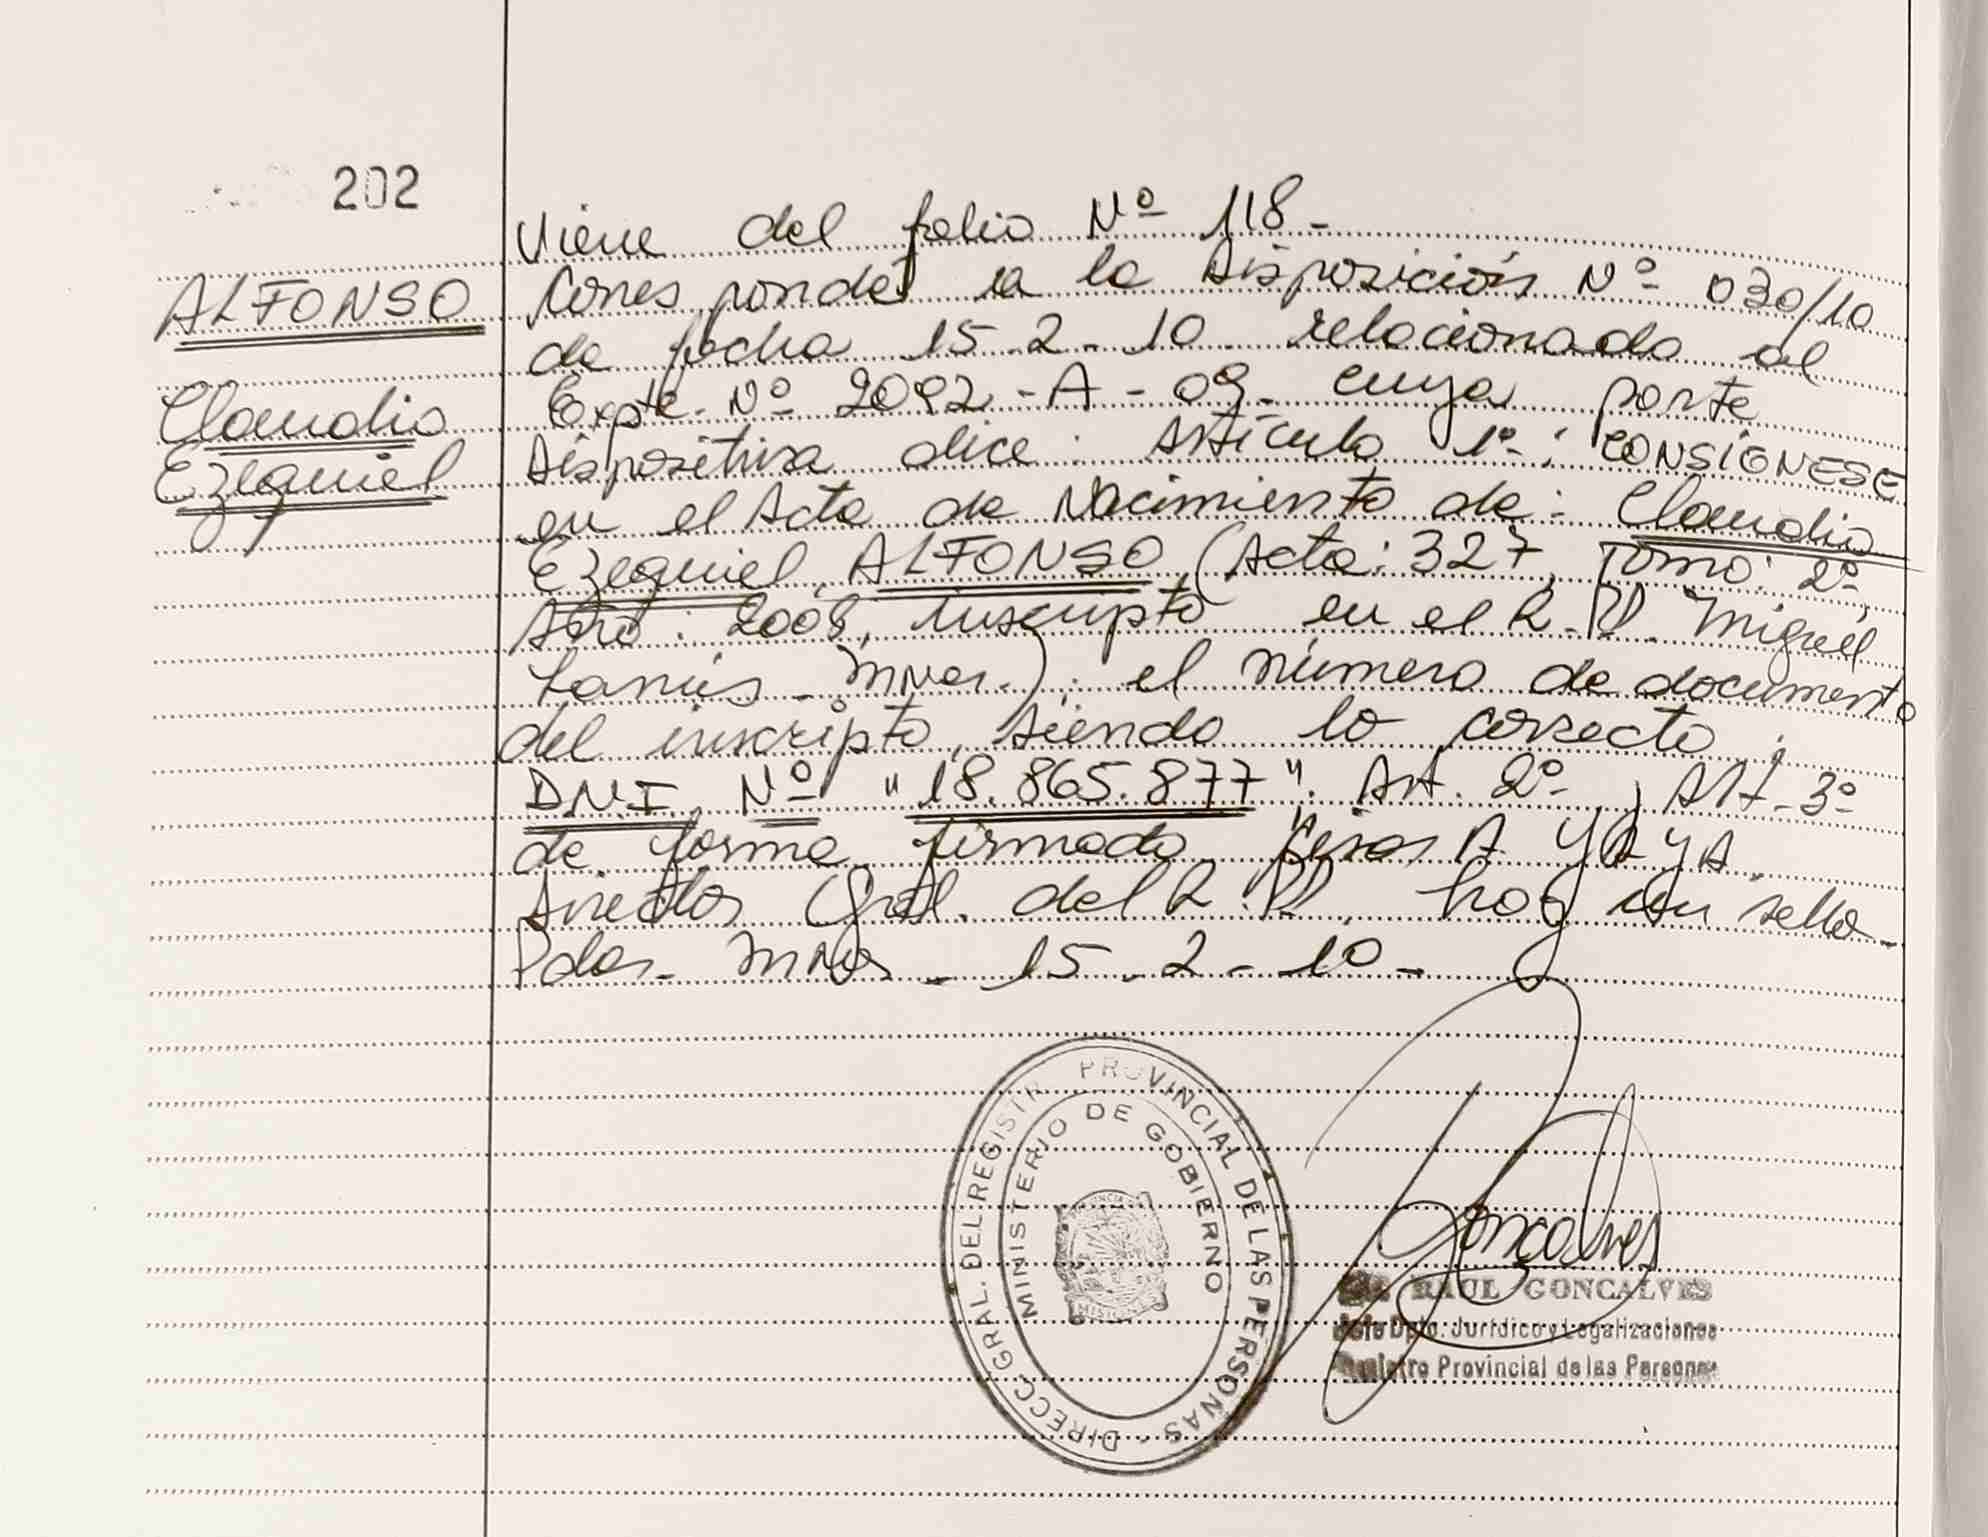 202
ALFONSO
Claudio
Ezequiel
Viene del folio Nº 118-
Corresponde a la Disposición Nº 030/10
de fecha 15-2-10 relacionado al
Expte. Nº 2092-A-09 cuya parte
dispositiva dice: Artículo 1º: CONSIGNESE
en el Acta de Nacimiento de: Claudio
Ezequiel ALFONSO (Acta: 327, Tomo: 2º,
Año: 2008, inscripto en el R.P.P. Miguel
Lanús - Mnes.); el número de documento
del inscripto, siendo lo correcto:
DNI Nº "18.865.877". Art. 2º, Art. 3º
de forma, firmado AYAYA
Director Gral. del R.P.P. hay un sello-
Pdas. Mnes - 15-2-10-
DIRECC. GRAL. DEL REGISTR PROVINCIAL DE LAS PERSONAS -
MINISTERIO DE GOBIERNO
Goncalves
RAUL GONCALVES
Jefe Dpto. Jurídico y Legalizaciones
Registro Provincial de las Personas